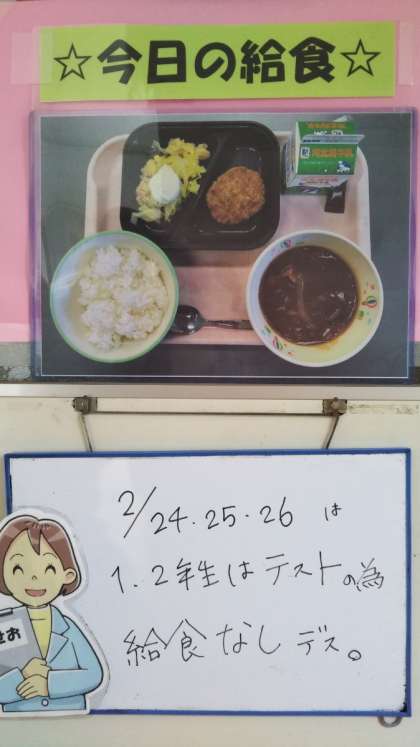 ☆今日の給食☆
2/24.25.26 は
1.2年生はテストの為
給食なしデス。
せお